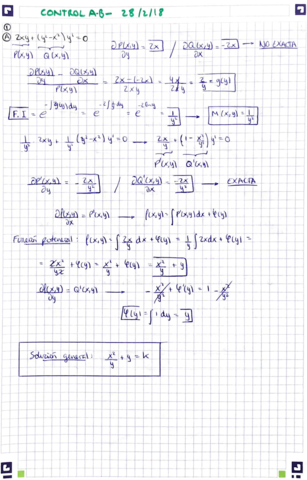 CONTROL A-B - 28/2/18
①
Ⓐ 2xy + (y²-x²) y' = 0    ∂P(x,y)/∂y = 2x / ∂Q(x,y)/∂x = -2x → NO EXACTA
P(x,y)  Q(x,y)
(∂P(x,y)/∂y - ∂Q(x,y)/∂x) / P(x,y) = (2x-(-2x))/2xy = 4x/2xy = 2/y = g(y)
F.I = e^(-∫g(y)dy) = e^(-∫2/y dy) = e^(-2 ln y) = 1/y² → M(x,y) = 1/y²
1/y² 2xy + 1/y² (y²-x²) y' = 0 → 2x/y + (1 - x²/y²) y' = 0
P'(x,y)  Q'(x,y)
∂P'(x,y)/∂y = -2x/y² / ∂Q'(x,y)/∂x = -2x/y² → EXACTA
∂f(x,y)/∂x = P'(x,y) → f(x,y) = ∫P'(x,y)dx + φ(y)
Función potencial: f(x,y) = ∫ 2x/y dx + φ(y) = 1/y ∫ 2x dx + φ(y) =
= 2x²/y2 + φ(y) = x²/y + φ(y) = x²/y + y
∂f(x,y)/∂y = Q'(x,y) → - x²/y² + φ'(y) = 1 - x²/y²
φ(y) = ∫ 1 dy = y
Solución general: x²/y + y = K